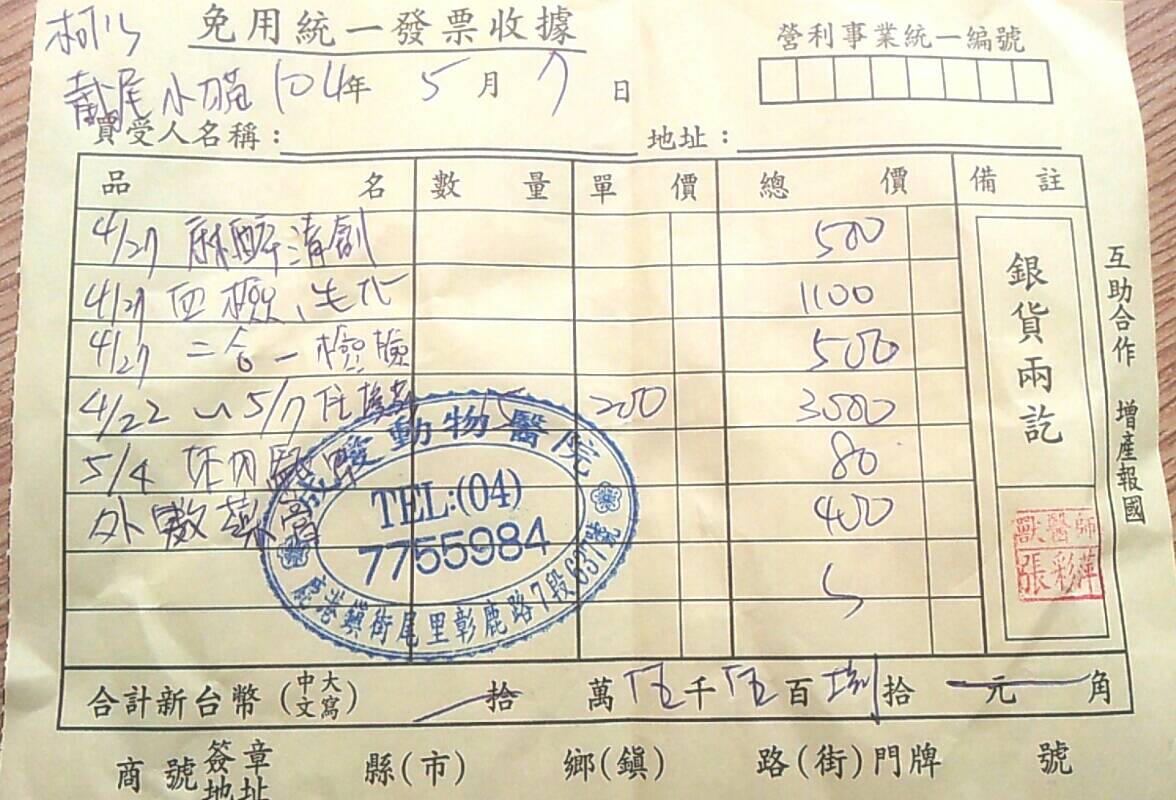 免用統一發票收據
營利事業統一編號
戴尾小猫 104年 5月 7日
買受人名稱： 地址：
品名 數量 單價 總價 備註
4/27 麻醉清創 500
4/27 血檢、生化 1100
4/27 二合一檢驗 500
4/22~5/7 住 15 200 3000
5/4 80
外敷藥膏 400
銀貨兩訖
獸醫師
張彩萍
互助合作 增產報國
動物醫院
TEL:(04)
7755984
鹿港鎮街尾里彰鹿路7段637號
合計新台幣(中文大寫) 拾 萬 伍千伍百捌拾 元 角
商號簽章地址 縣(市) 鄉(鎮) 路(街)門牌 號